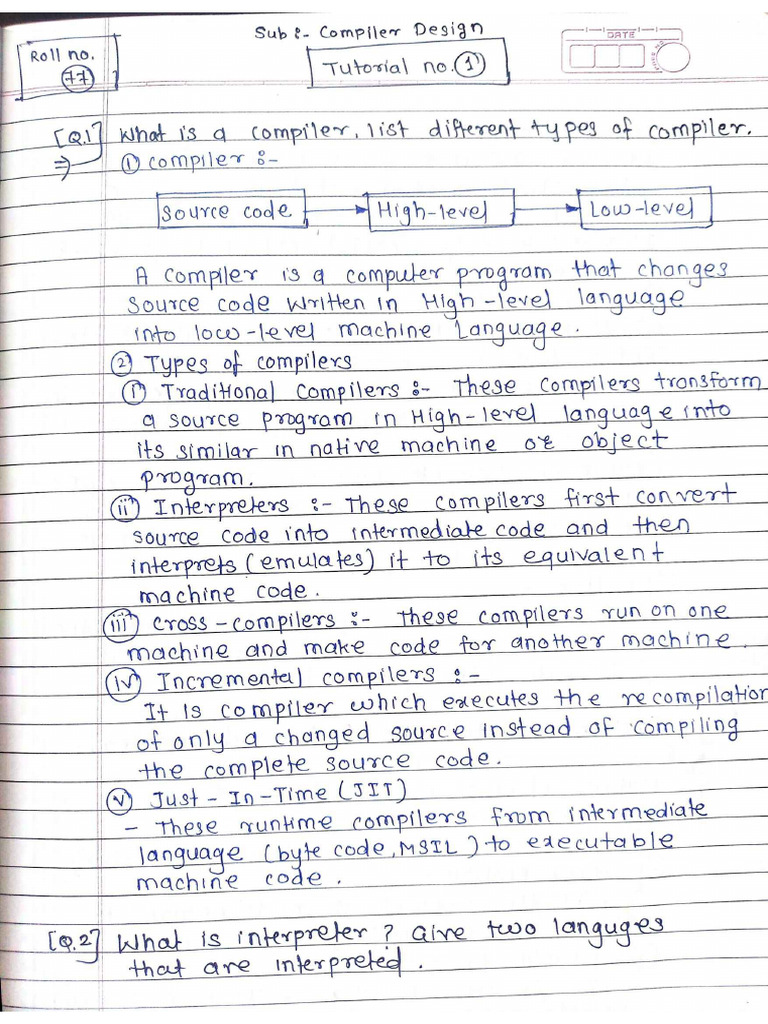 Sub :- Compiler Design
Roll no.
77
Tutorial no. 1
DATE
[Q.1] What is a compiler, list different types of compiler.
⇒ ① compiler :-
Source code → High-level → Low-level
A compiler is a computer program that changes
source code written in High-level language
into low-level machine Language.
② Types of compilers
(i) Traditional Compilers :- These compilers transform
a source program in High-level language into
its similar in native machine or object
program.
(ii) Interpreters :- These compilers first convert
source code into intermediate code and then
interprets (emulates) it to its equivalent
machine code.
(iii) cross-compilers :- These compilers run on one
machine and make code for another machine.
(iv) Incremental compilers :-
It is compiler which executes the recompilation
of only a changed source instead of compiling
the complete source code.
(v) Just-In-Time (JIT)
- These runtime compilers from intermediate
language (byte code, MSIL) to executable
machine code.
[Q.2] What is interpreter? Give two languges
that are interpreted.